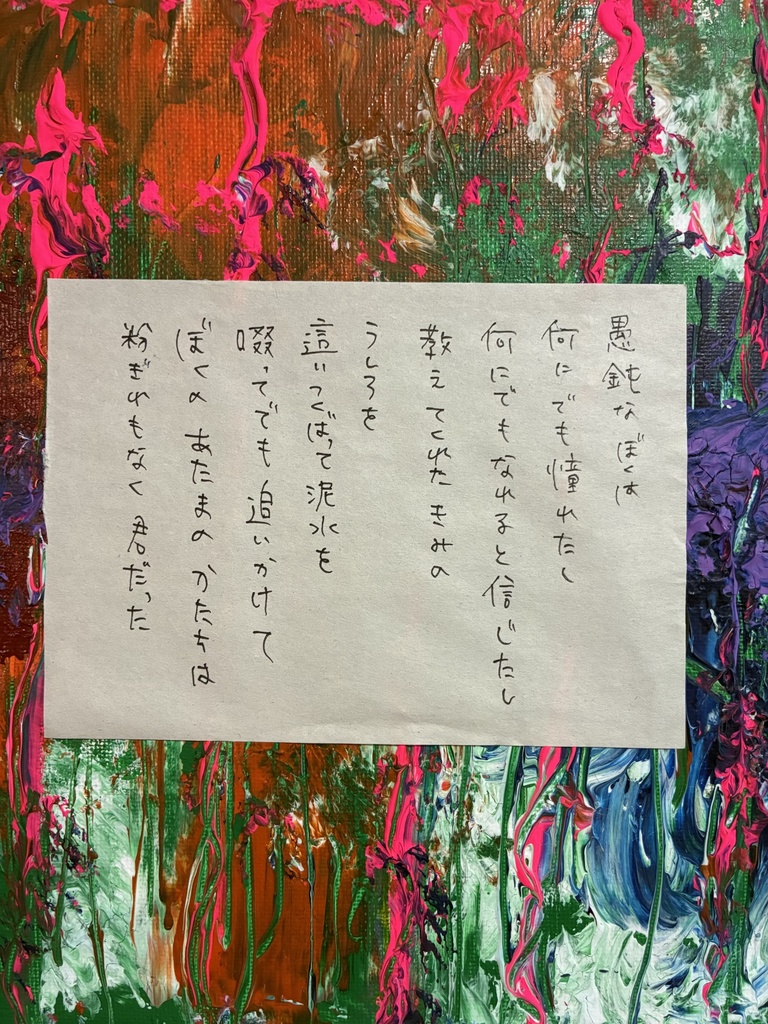 愚鈍なぼくは
何にでも憧れたし
何にでもなれると信じたし
教えてくれたきみの
うしろを
這いつくばって泥水を
啜ってでも追いかけて
ぼくのあたまのかたちは
粉ぎれもなく君だった